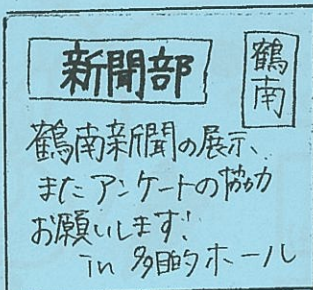 新聞部
鶴南
鶴南新聞の展示、
またアンケートの協力
お願いします!
in 多目的ホール